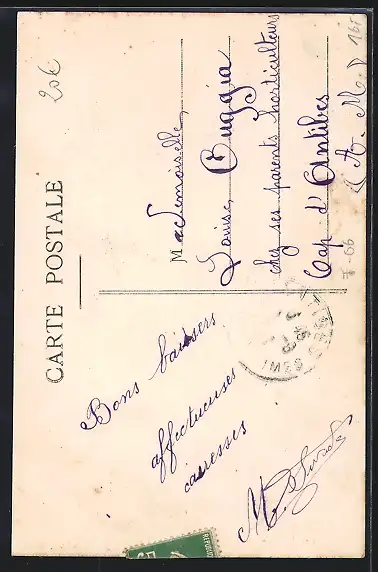 CARTE POSTALE
20€
16F
Mademoiselle
Louise Cuggia
chez ses parents horticulteurs
Cap d'Antibes
(A. M.)
7-66
Bons baisers
affectueuses
caresses
M.